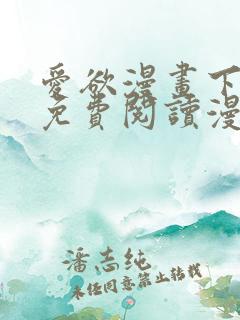 愛欲漫畫下
免費閱讀漫
潘志纯
未经同意禁止转载